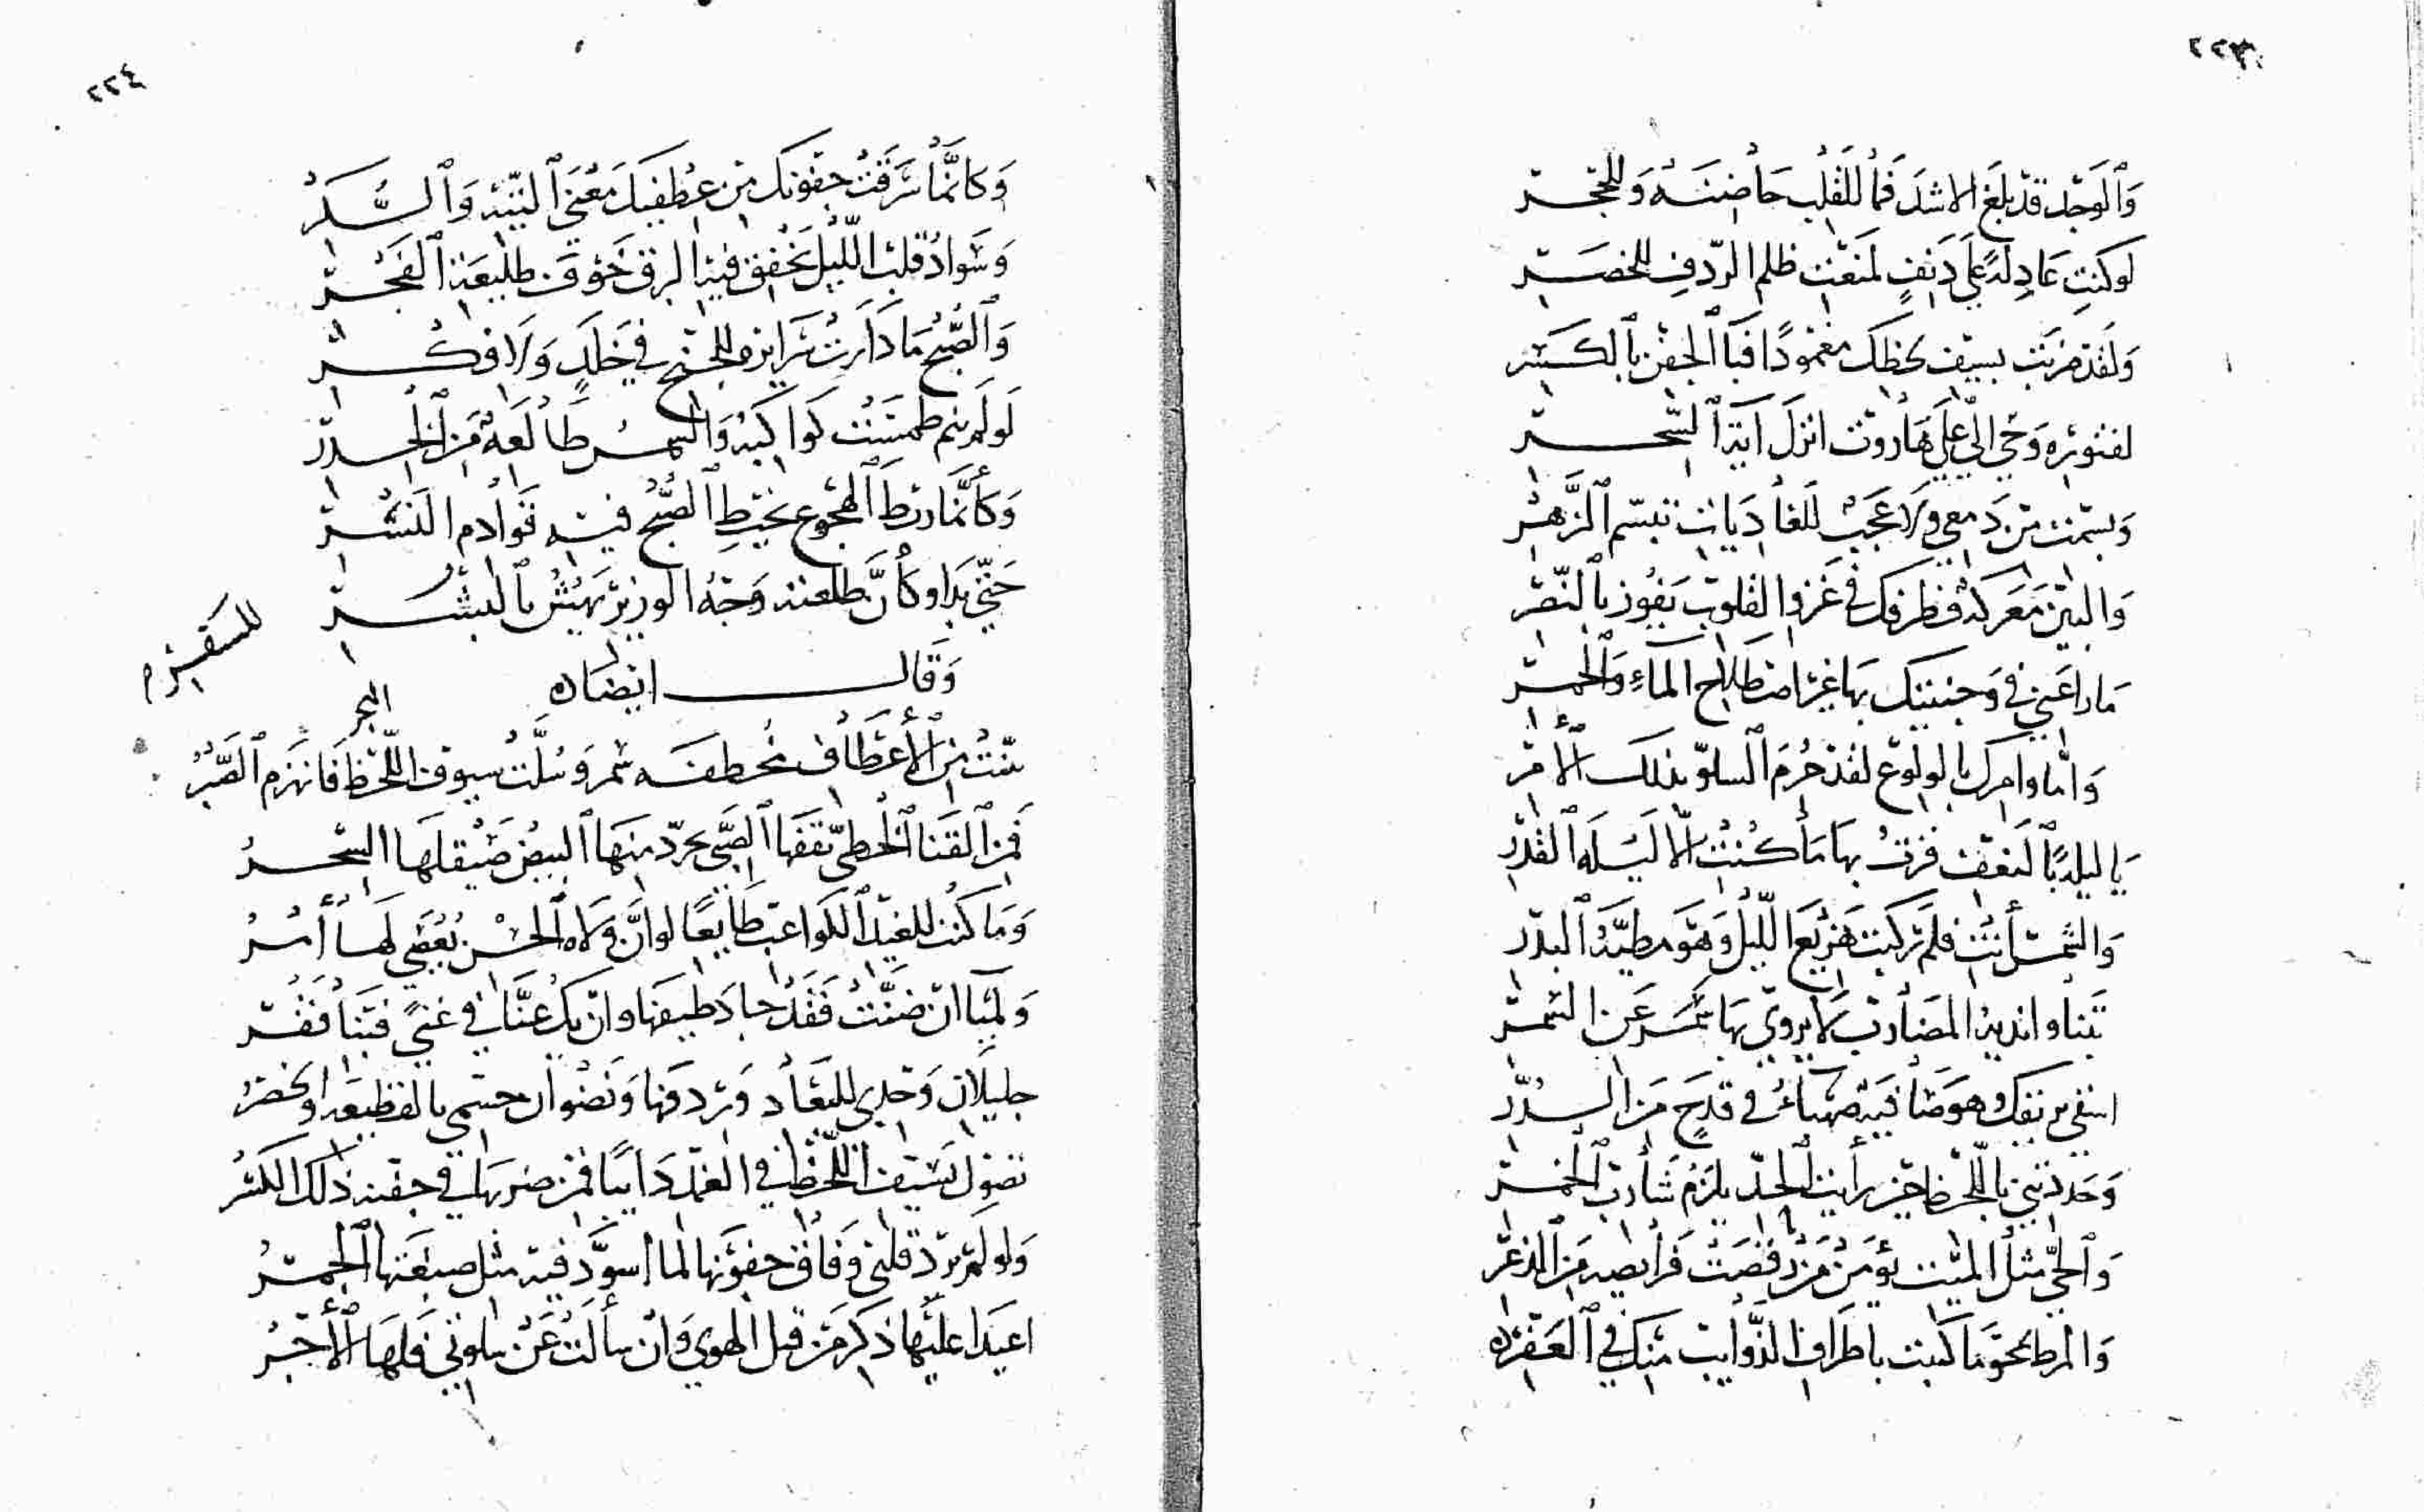 ٢٢٣
وَالوَجْد قد بلغَ الاشدَ فما للقلب حاضنَة وَللحجر
لو كنتِ عادلةً علي دَنفٍ لمنعت ظلم الردفِ للخصر
وَلقد ضربت بسيف لحظك مغمودًا فنبا الجفن بالكسر
لفتوره وَحي الي علي هاروت انزل اية السحر
وبسمت من دَمعي ولا عَجَبٌ للغاديات تبسّم الزَّهر
والبين مَعركة فطرفك في غَزو القلوب يَفوز بالنّصر
ما راعَني في وَجنتيك بها غير اصطلاح الماءِ والخمر
وَامّا وامرك بالولوع لقد حُرمَ السلوّ بذلك الأمر
يا ليلةً بالنعف فزتُ بها ما كُنتِ الّا ليلَة القَدر
وَالشمسُ أنتِ فلم تركبت هَزيعَ الليل وَهوَ مطيَّة البدر
بتنا واندية المضارب لا يروي بها سَمَر عَن السّمر
اسقي بريقك وهوَ صَافية صَهباءُ في قدَحٍ مَن الدُّرّ
وَحددتني باللحظ حين رأيت الحدّ يلزم شارب الخمر
وَالحيّ مثل الميت يؤمن مَن رقصَت فرأيصه مَن الذعر
وَالمرط يمحو ما كتبت باطراف الذّوايب منك في العفر
٢٢٤
وَكانمّا سَرقت جفونك من عِطفيك مَعنَي التيه وَالسُّكر
وَسَوادُ قلب اللّيل يَخفق فيه البرق خَوف طليعَة الفَجر
وَالصُّبح ما دَارت سَرايره للجنح في خَلَدٍ وَلا فكر
لو لَم ينم طمست كواكبه وَالشمس طالعَة مَن الخدر
وَكأنّما ربط الهجوع بخيط الصُّبح فيه قوادم النّسر
حَتّي بَدا وكأنّ طلعته وَجهُ الوزير يَهشّ بالبشر
وَقال ايضًا
للسقيره
البحر
تثنت من الأعطاف مخطفه سمر وَسُلّت سيوف اللّحظ فانهزم الصّبر
فمن القنا الخطي ثقفها الصّبي تجرّد منها البيض صَيقلها السحر
وَما كنت للغيد الكواعب طايعًا لو انّ ولاه الحسن يُعصَي لها أمر
وَلميا ان ضنّت فقد جاد طيفها وان يك عنّا في غنيً فبنا فقر
جليلان وَجدي للبعاد وَردفها وَنضوان جسمي بالقطيعة او الخصر
تصول بسيف اللّحظ في الغمد دايبًا فمن ضربها في جفنه ذلك الكسر
وَلو لم يرد قلبي وَفاق جفونها لما اسوّد فيه مثل صبغتها الجمر
اعيدا عليها ذكر مَن قبل الهوي وَان سألت عَن سلوتي فلها الأجر